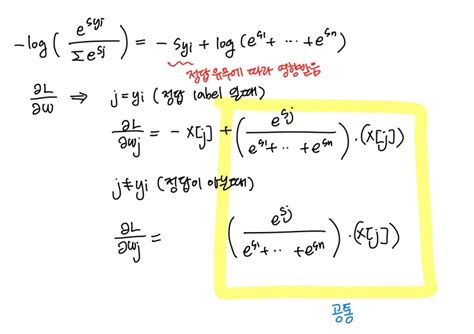 -log( e^{s_{yi}} / Σe^{sj} ) = -s_{yi} + log(e^{s1} + ··· + e^{sn})
정답유무에 따라 영향받음
∂L/∂w ⇒ j=yi (정답 label 일때)
∂L/∂wj = - X[j] + ( e^{sj} / e^{s1}+··+e^{sn} )·(X[j])
j≠yi (정답이 아닐때)
∂L/∂wj = ( e^{sj} / e^{s1}+··+e^{sn} )·(X[j])
공통